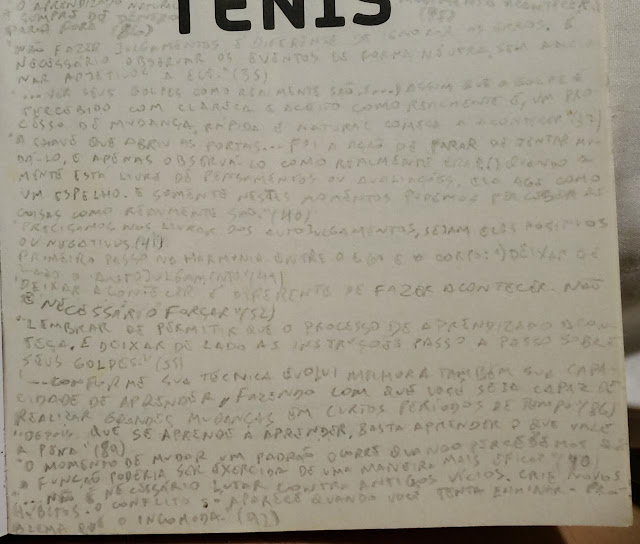 TÊNIS
O APRENDIZADO NATURAL
SEMPRE DE DENTRO
PARA FORA" (86)
"NÃO FAZER JULGAMENTOS É DIFERENTE DE IGNORAR OS ERROS. É
NECESSÁRIO OBSERVAR OS EVENTOS DE FORMA NEUTRA, SEM ADICIO
NAR ADJETIVOS A ELES." (35)
"...VER SEUS GOLPES COMO REALMENTE SÃO. (...) ASSIM QUE O GOLPE É
PERCEBIDO COM CLAREZA E ACEITO COMO REALMENTE É, UM PRO
CESSO DE MUDANÇA, RÁPIDA E NATURAL COMEÇA A ACONTECER" (37)
"A CHAVE QUE ABRIU AS PORTAS... FOI A AÇÃO DE PARAR DE TENTAR MU
DÁ-LO, E APENAS OBSERVÁ-LO COMO REALMENTE ERA. QUANDO A
MENTE ESTÁ LIVRE DE PENSAMENTOS OU AVALIAÇÕES, ELA AGE COMO
UM ESPELHO. E SOMENTE NESTES MOMENTOS PODEMOS PERCEBER AS
COISAS COMO REALMENTE SÃO." (40)
"PRECISAMOS NOS LIVRAR DOS AUTOJULGAMENTOS, SEJAM ELES POSITIVOS
OU NEGATIVOS. (41)
PRIMEIRO PASSO NA HARMONIA ENTRE O EGO E O CORPO: "DEIXAR DE
LADO O AUTOJULGAMENTO"
"DEIXAR ACONTECER É DIFERENTE DE FAZER ACONTECER. NÃO
É NECESSÁRIO FORÇAR" (52)
"LEMBRAR DE PERMITIR QUE O PROCESSO DE APRENDIZADO ACON
TEÇA. E DEIXAR DE LADO AS INSTRUÇÕES PASSO A PASSO SOBRE
SEUS GOLPES." (55)
"...CONFORME SUA TÉCNICA EVOLUI MELHORA TAMBÉM SUA CAPA
CIDADE DE APRENDER, FAZENDO COM QUE VOCÊ SEJA CAPAZ DE
REALIZAR GRANDES MUDANÇAS EM CURTOS PERÍODOS DE TEMPO" (86)
"DEPOIS QUE SE APRENDE A APRENDER, BASTA APRENDER O QUE VALE
A PENA" (89)
"O MOMENTO DE MUDAR UM PADRÃO OCORRE QUANDO PERCEBEMOS QUE
A FUNÇÃO PODERIA SER EXERCIDA DE UMA MANEIRA MAIS EFICAZ" (90
"...NÃO É NECESSÁRIO LUTAR CONTRA ANTIGOS VÍCIOS. CRIE NOVOS
HÁBITOS. O CONFLITO SÓ APARECE QUANDO VOCÊ TENTA ELIMINAR O PRO
BLEMA QUE O INCOMODA." (92)